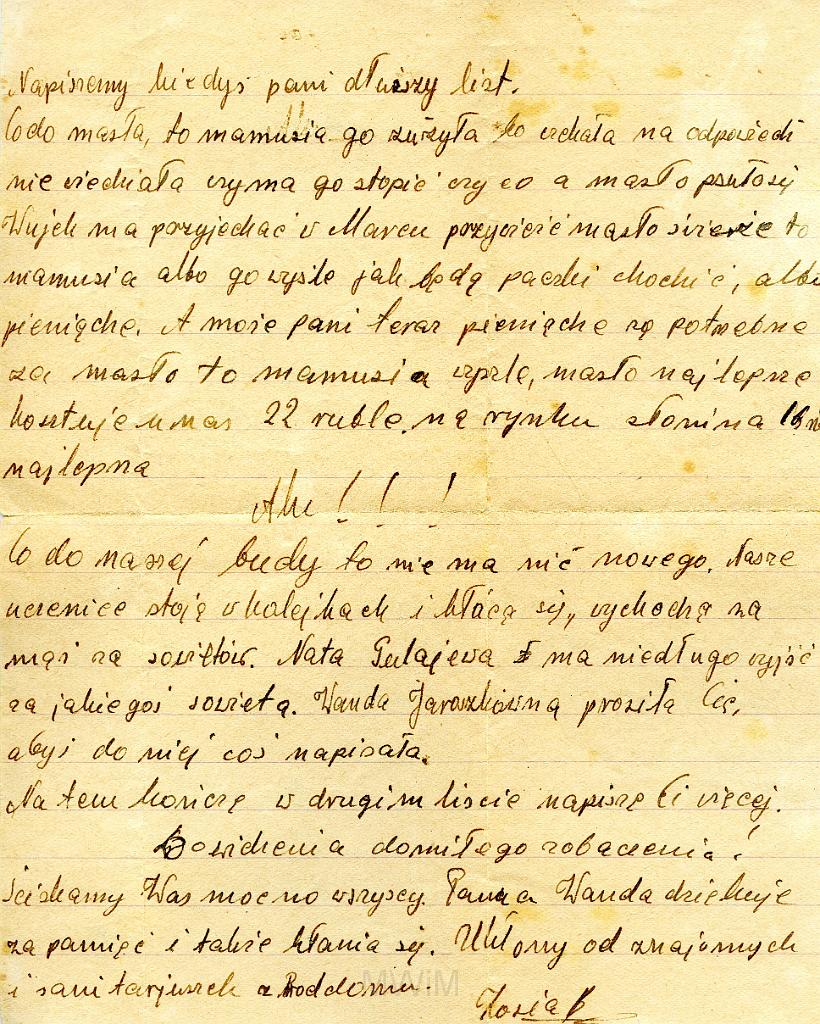 Napiszemy kiedyś pani dłuższy list.
Co do masła, to mamusia go zużyła bo czekała na odpowiedź
nie wiedziała czy ma go stopić czy co a masło psuło się
Wujek ma przyjechać w Marcu przywieźć masło świeże to
mamusia albo go wyśle jak będą paczki chodzić, albo
pieniądze. A może pani teraz pieniądze są potrzebne
za masło to mamusia wyśle, masło najlepsze
kosztuje u nas 22 ruble na rynku słonina 16
najlepsza
Ale ! ! !
Co do naszej budy to nie ma nić nowego. Nasze
uczenice stoją w kolejkach i kłócą się, wychodzą za
mąż za sowietów. Nata Gulajewa ma niedługo wyjść
za jakiegoś sowieta. Wanda Jaroszkówna prosiła Cię,
abyś do niej coś napisała.
Na tem kończę w drugim liście napiszę Ci więcej.
Dowidzenia domiłego zobaczenia!
Ściskamy Was mocno wszyscy. Panna Wanda dziękuje
za pamięć i także kłania się. Ukłony od znajomych
i sanitarjuszek z Poddomu.
Zosia
MWiM